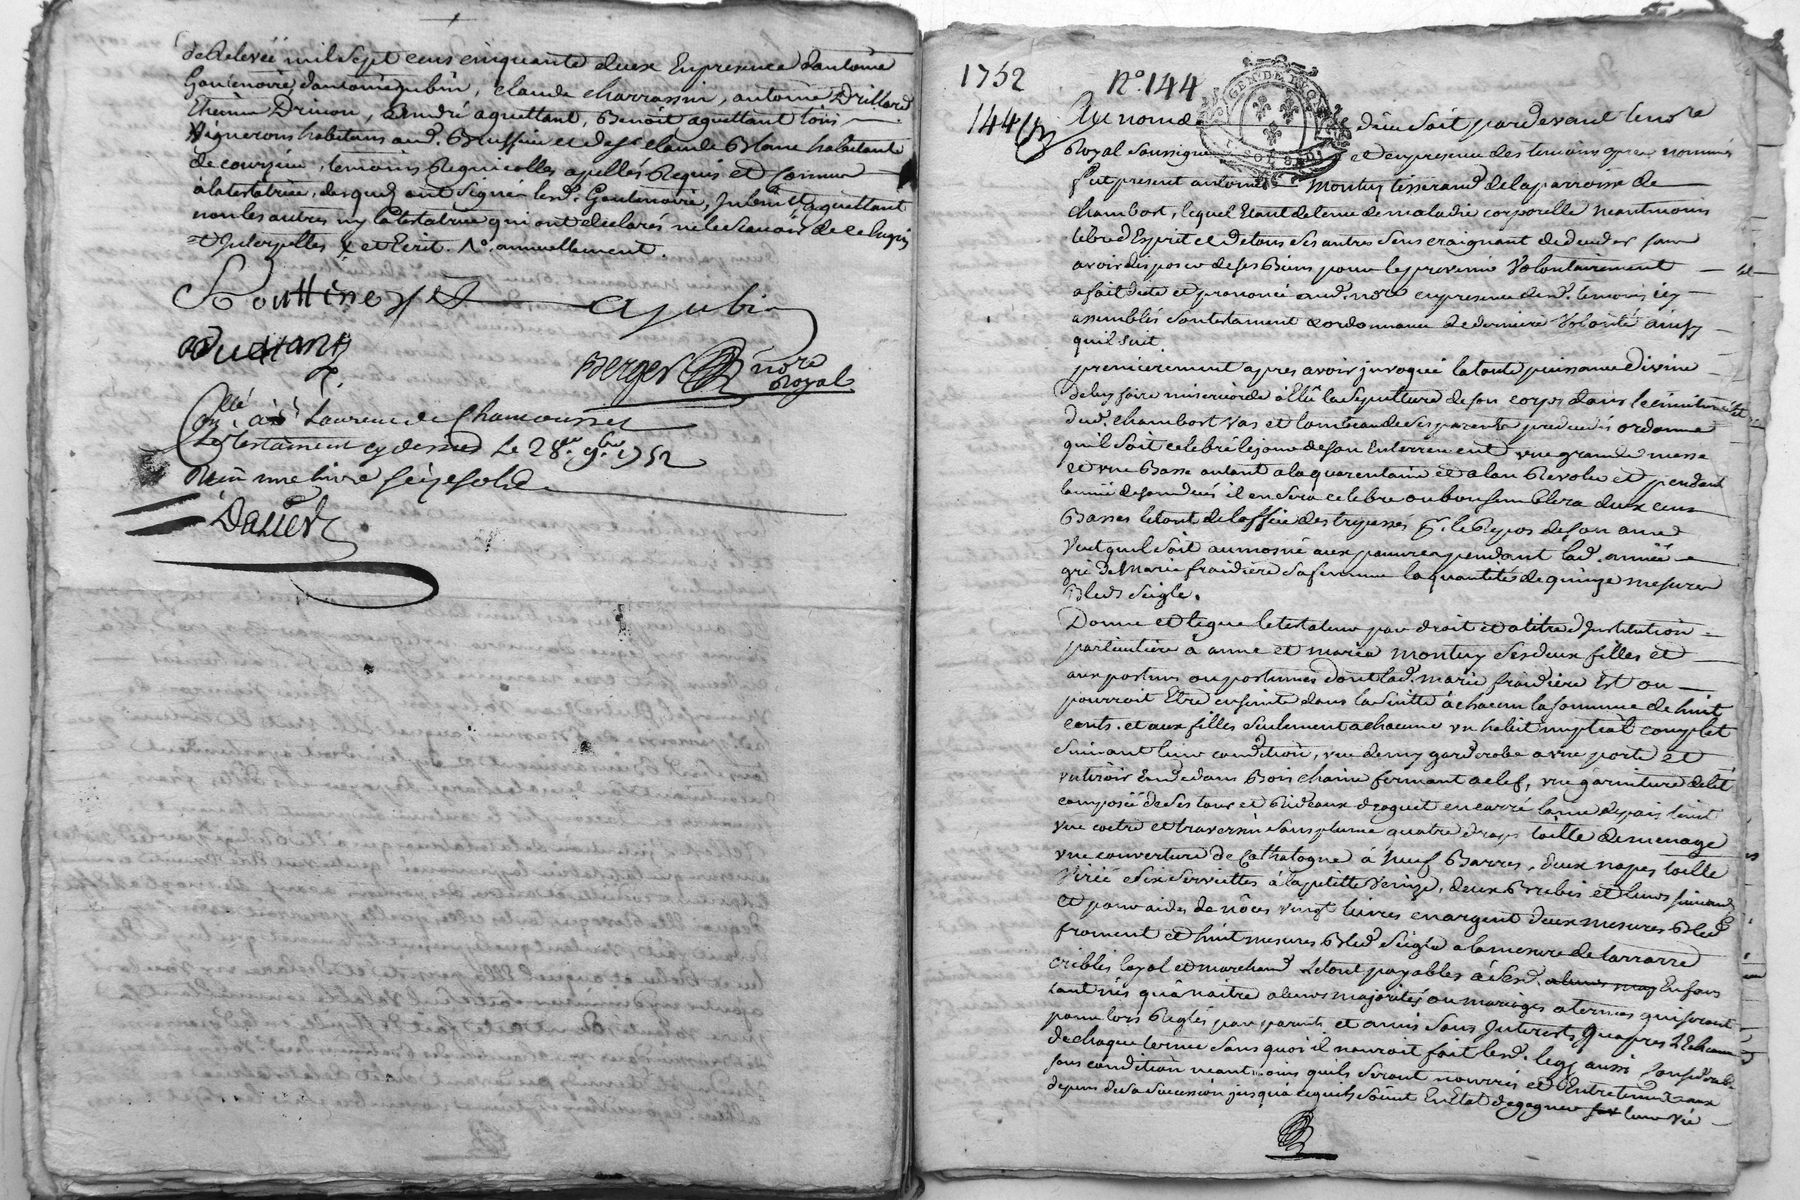 de Relevée mil Sept cens cinquante deux En presence d'antoine
Goutenoire d'antoine jubin, claude charrassin, antoine Drillard
Etienne Drivon, andré aguettant, Benoit aguettant tous
Vignerons habitans aud. Brussieu et de s.r claude Blanc habitant
de courzieu, temoins Requis et apellés Requis et connus
a la testatrice, desquels ont signé lesd. Goutenoire, Jubin et aguettant
non les autres ny la testatrice qui ont declarés ne le scavoir de ce Enquis
et Interpellés et Ecrit. N.o annuellement.
Gouttenoyre
a jubin
Berger no.re
Royal
C.llé à S.t Laurent de Chamousset
Le testament cy dessus Le 28.e 9.bre 1752
Reçu une livre seize sols
Dalier
1752 N.o 144
144
GEN. DE LYON
Au nom de dieu soit pardevant le no.re
Royal soussigné et en presence des temoins apres nommés
fut present antoine Montuy tisserand de la parroisse de
chambost, lequel Etant detenu de maladie corporelle neantmoins
libre d'Esprit et de tous ses autres sens craignant de deceder sans
avoir disposé de ses Biens pour le prevenir Volontairement
a fait dicté et prononcé aud. no.re en presence desd. temoins icy
assemblés son testament et ordonnance de derniere Volonté ainsy
qu'il suit
premierement apres avoir invoquée la toute puissance divine
de luy faire misericorde à Elû la sepulture de son corps dans le cimitiere
dud. chambost Vas et tombeau de ses parents predecedés ordonne
qu'il soit celebré le jour de son Enterrement une grande messe
et une Basse autant a la quarantaine et a l'an Revolu et pendant
l'année de son decés il en sera celebré ou bon semblera deux cens
Basses le tout de l'office des trepassés p.r le Repos de son ame
Veut qu'il soit aumosné aux pauvres pendant lad. année
gré de Marie fraidiere sa femme la quantité de quinze mesures
Bled seigle.
Donne et legue le testateur par droit et a titre d'Institution
particuliere à anne et marie montuy ses deux filles et
aux postumes ou postumes dont lad. marie fraidiere Est ou
pourroit Etre enceinte dans la suitte à chacun la somme de huit
cents. et aux filles seulement a chacune un habit nuptial complet
suivant leur condition, une demy garderobe a une porte et
un tiroir En dedans Bois chane fermant a clef, une garniture de lit
composée de ses tour et Rideaux droguet en carré laine
une coetre et traversin sans plume quatre draps toille de menage
une couverture de Cathalogne à Neuf Barres, deux napes toille
et six serviettes à la petitte Venize, deux Brebis et leurs suivans
et pour aides de nôces vingt livres en argent deux mesures Bled
froment et huit mesures Bled seigle a la mesure de tarrare
cribles loyal et marchand Le tout payables à sesd. Enfans
tant nés qu'à naitre a leurs majorités ou mariages a termes qui seront
pour lors Reglés par parents et amis sans Interests qu'apres l'Echeance
de chaque terme sans quoi il n'auroit fait lesd. legs aussi considerable
sous condition neantmoins qu'ils seront nourris et Entretenus aux
depens de sa succession jusqu'à ce qu'ils soient En Etat de gagner leur vie